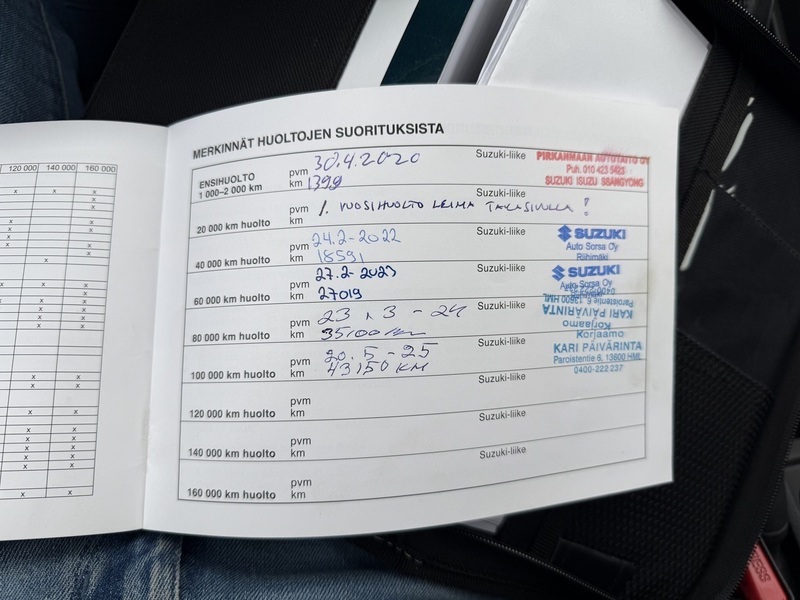 120 000 140 000 160 000
MERKINNÄT HUOLTOJEN SUORITUKSISTA
ENSIHUOLTO
1 000–2 000 km
pvm 30.4.2020
km 1399
Suzuki-liike
PIRKANMAAN AUTOTAITO OY
Puh. 010 423 5423
SUZUKI ISUZU SSANGYONG
20 000 km huolto
pvm 1. VUOSIHUOLTO LEIMA TAKASIVULLA!
km
Suzuki-liike
40 000 km huolto
pvm 24.2-2022
km 18591
Suzuki-liike
SUZUKI
Auto Sorsa Oy
Riihimäki
60 000 km huolto
pvm 27.2-2023
km 27019
Suzuki-liike
SUZUKI
Auto Sorsa Oy
80 000 km huolto
pvm 23.3-24
km 35100 km
Suzuki-liike
Paroistentie 6, 13600 HML
KARI PÄIVÄRINTA
Korjaamo
100 000 km huolto
pvm 20.5-25
km 43150 KM
Suzuki-liike
Korjaamo
KARI PÄIVÄRINTA
Paroistentie 6, 13600 HML
0400-222 237
120 000 km huolto
pvm
km
Suzuki-liike
140 000 km huolto
pvm
km
Suzuki-liike
160 000 km huolto
pvm
km
Suzuki-liike